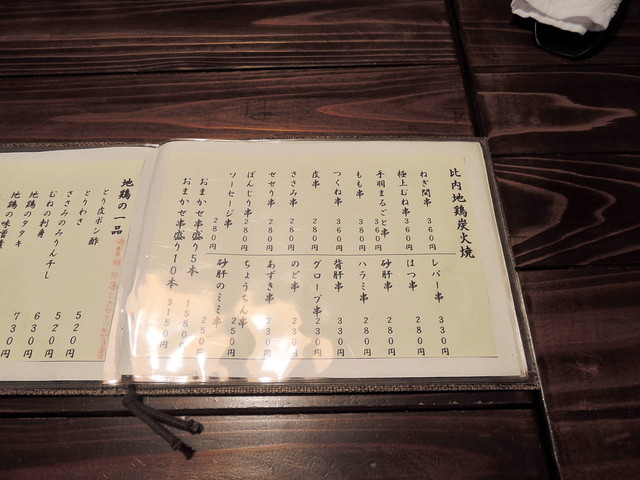 比内地鶏炭火焼
ねぎ間串 360円
極上むね串 360円
手羽まるごと串 360円
もも串 380円
つくね串 360円
皮串 280円
ささみ串 280円
せせり串 280円
ぼんじり串 280円
ソーセージ串 280円
レバー串 330円
はつ串 280円
砂肝串 280円
ハラミ串 280円
背肝串 330円
グローブ串 230円
のど串 230円
あずき串 230円
ちょうちん串 250円
砂肝のミミ串 250円
おまかせ串盛り5本 1580円
おまかせ串盛り10本 3150円
地鶏の一品
とり皮ポン酢
とりわさ 520円
ささみのみりん干し 520円
むねの刺身 630円
地鶏のタタキ 730円
地鶏の味噌漬